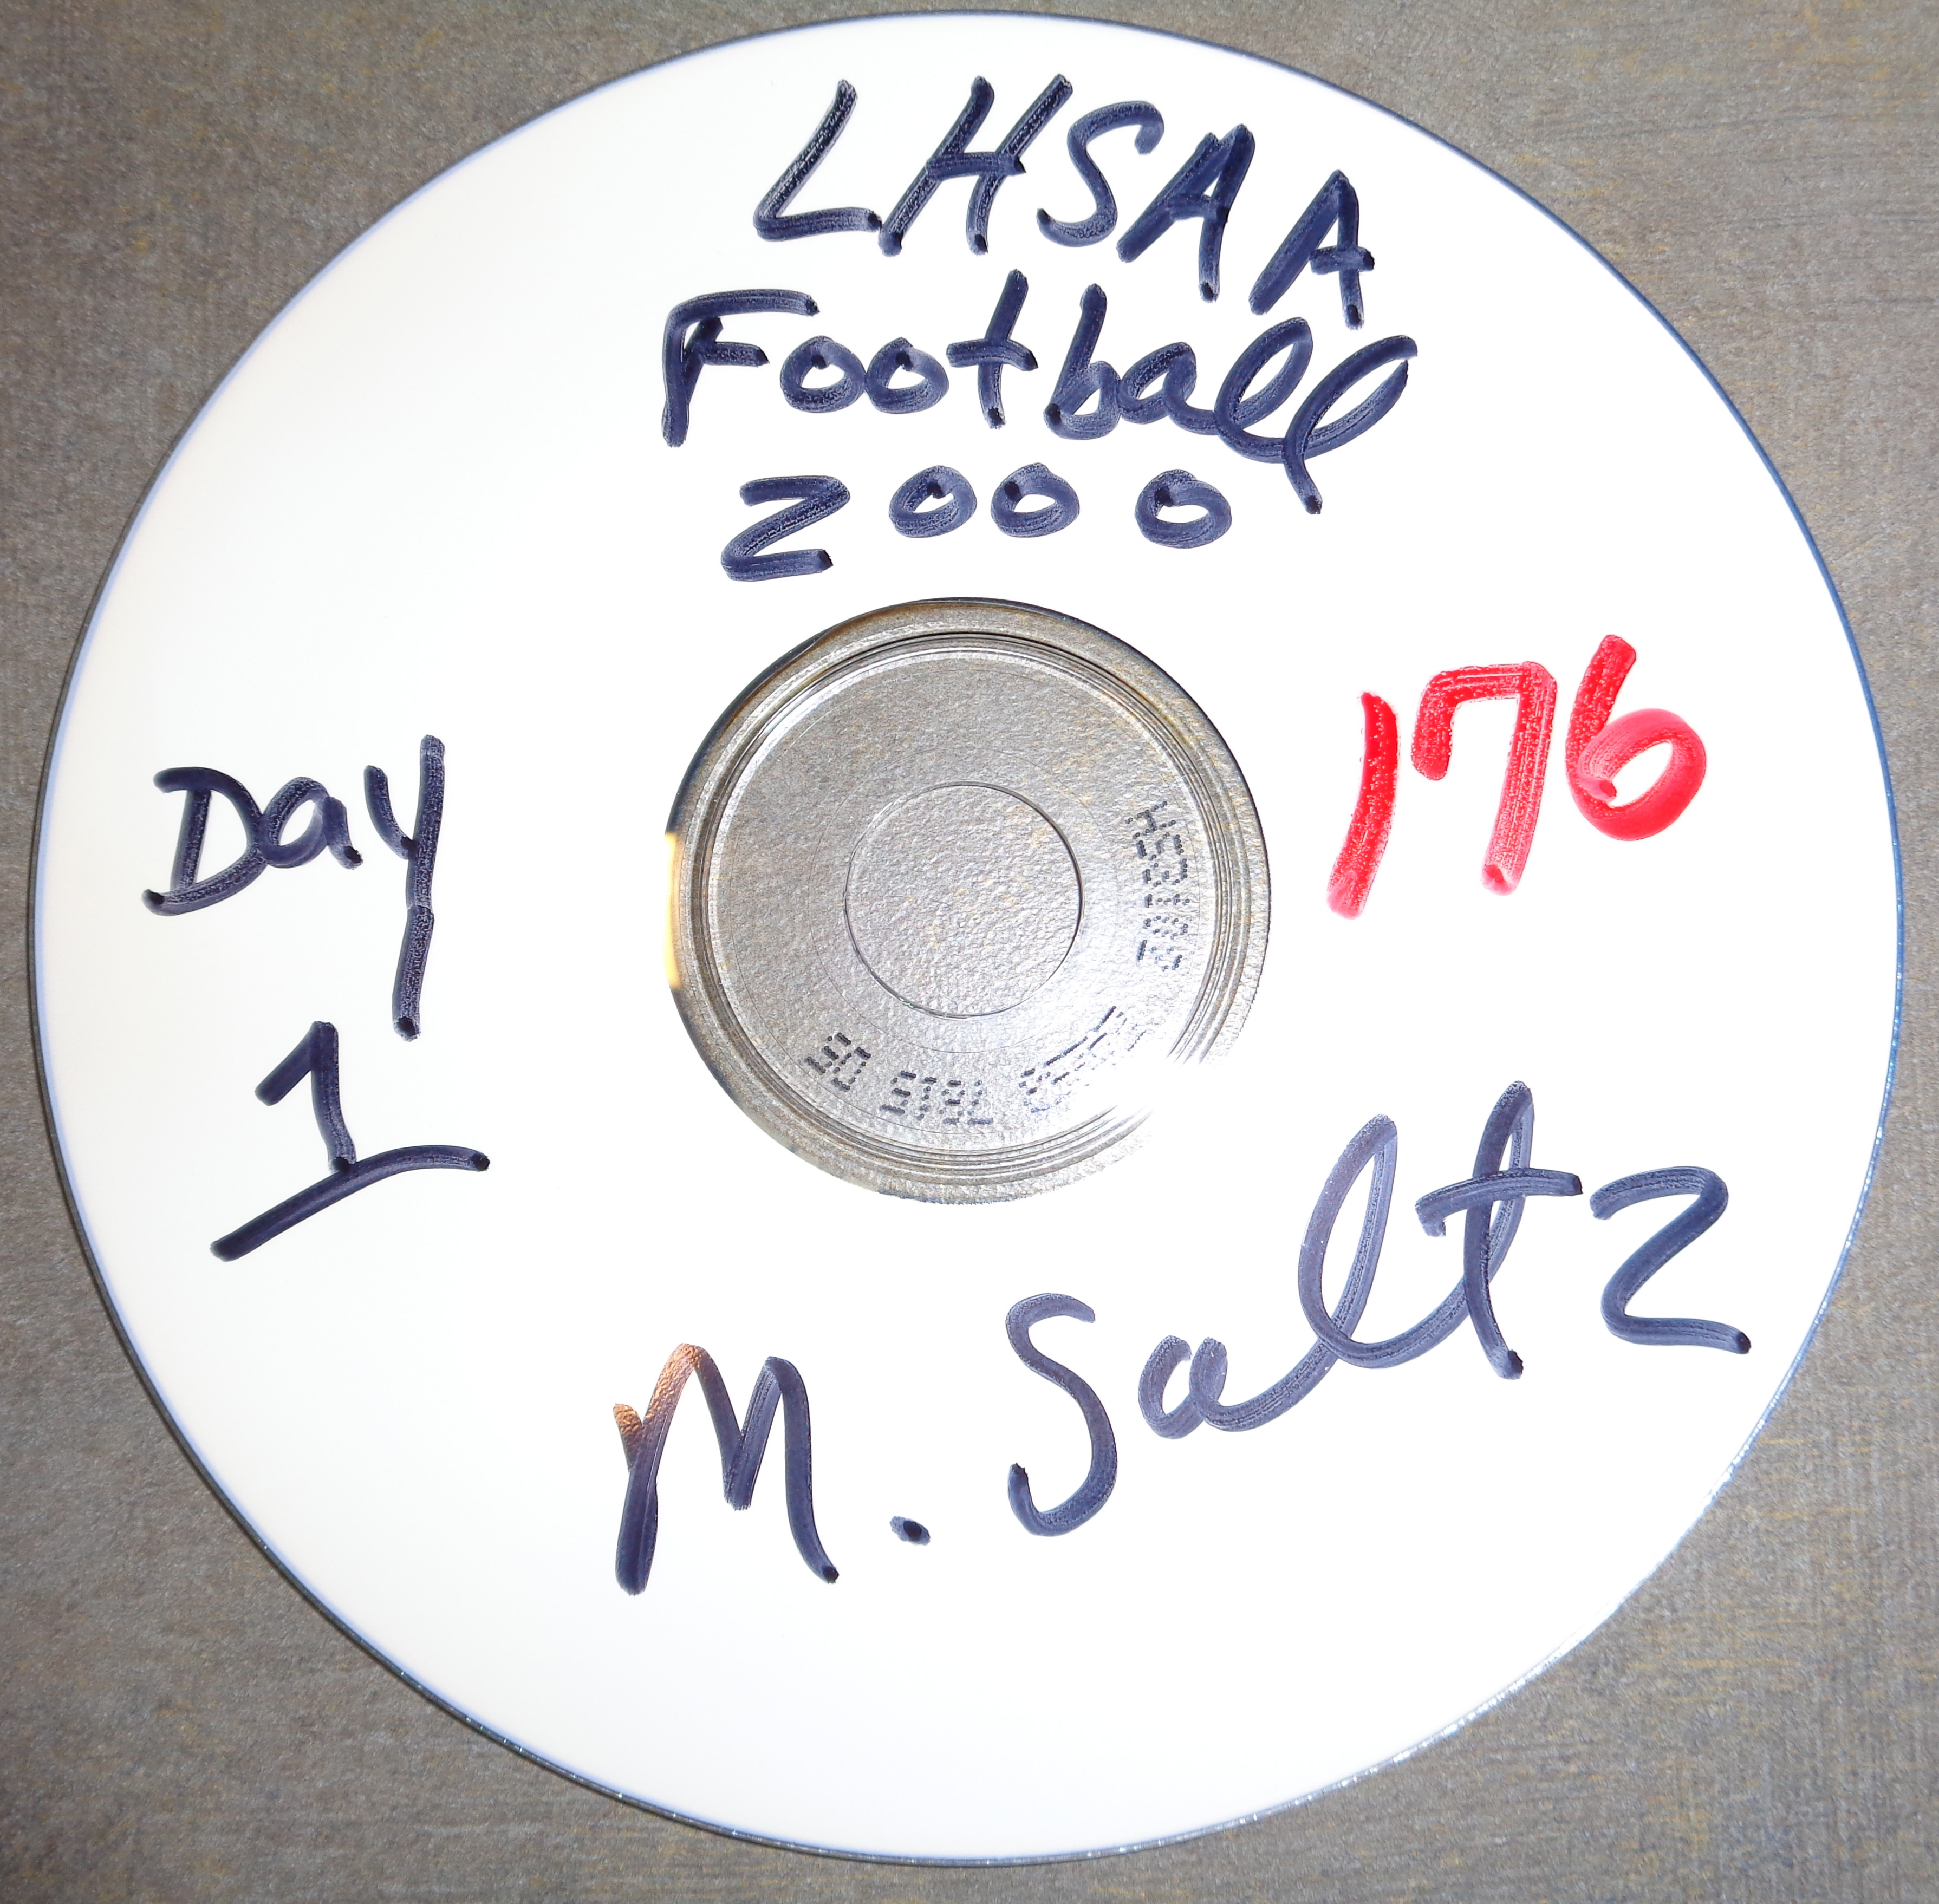 LHSAA
Football
2000
176
Day
1
M. Saltz